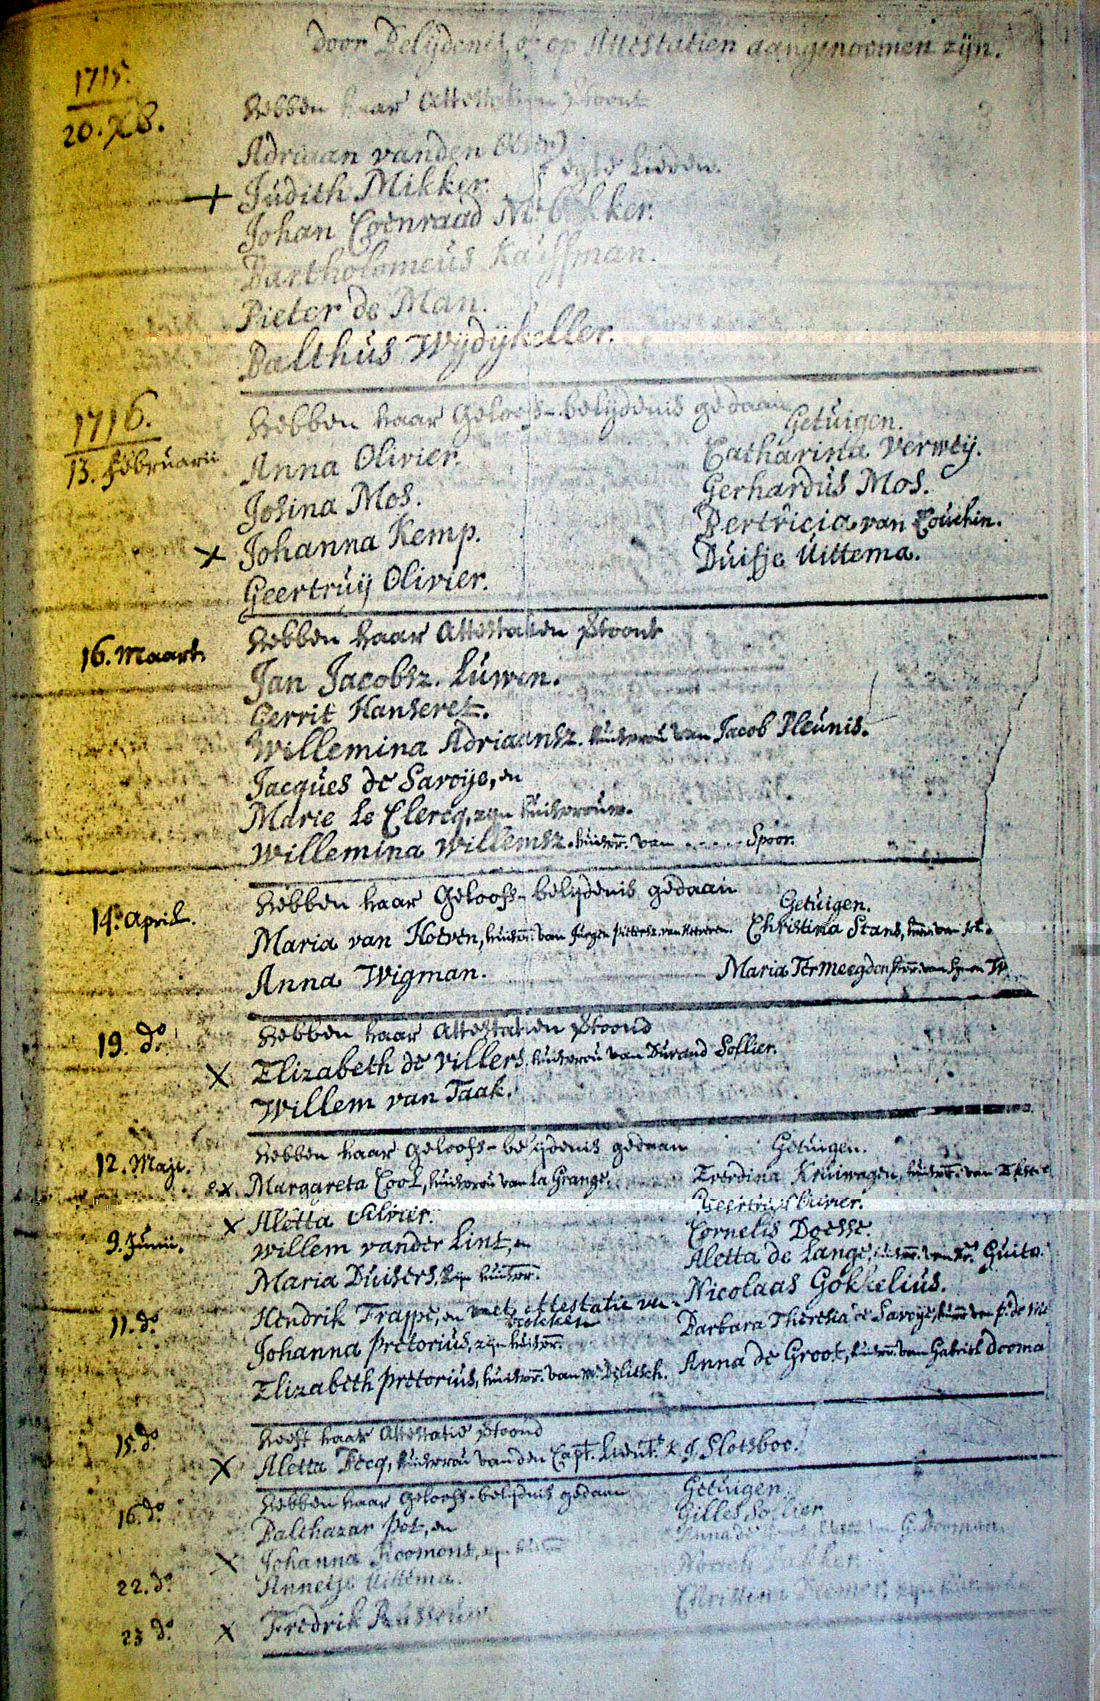 door Belijdenis, of op Attestatien aangenoomen zijn.
1715.
20. Xb.
Hebben haar Attestatien vertoont
Adriaan vanden
Judith Mikker. egte Lieden.
Johan Coenraad
Bartholomeus Kauffman.
Pieter de Man.
Balthus Wijdijkeller.
1716.
13. Februarii
Hebben haar Geloofs-belijdenis gedaan Getuigen.
Anna Olivier. Catharina Verweij.
Josina Mos. Gerhardus Mos.
Johanna Kemp. Bertricia van
Geertruij Olivier. Duifje Uittema.
16. Maart.
Hebben haar Attestatien vertoont
Jan Jacobsz. Luwen.
Gerrit Hanseret.
Willemina Adriaansz. huisvrou van Jacob Pleunis.
Jacques de Savoije, en
Marie le Clercq, zijn huisvrouw.
Willemina Willemsz. huisvr. van ..... Spoor.
14. April.
Hebben haar Geloofs-belijdenis gedaan Getuigen.
Maria van Hoeven, huisvr. van Jurgen Christina Stans,
Anna Wigman. Maria Termeegden
19. do.
Hebben haar Attestatien vertoond
X Elizabeth de Villers, huisvrou van Durand Sollier.
Willem van Taak.
12. Maji.
Hebben haar Geloofs-belijdenis gedaan Getuigen.
X Margareta Cool, huisvrou van la Grange. Everdina Kruiwagen, huisvr. van
X Aletta Olivier. Geertruij Olivier.
9. Junii.
Willem vander Lint, en Cornelis Doesse.
Maria Duisers, zijn huisvr. Aletta de Lange, huisvr. van
11. do.
Hendrik Trappe, en met attestatie Nicolaas Gokkelius.
Johanna Pretorius, zijn huisvr. Barbara Theresia de Savoije,
Elizabeth Pretorius, huisvr. van Anna de Groot, huisvr. van Gabriel Dooma
15. do.
Heeft haar Attestatie vertoond
X Aletta huisvrou van den Capt. Lieut. K. J. Slotsboo.
16. do.
Hebben haar Geloofs-belijdnis gedaan Getuigen.
Balthazar Pot, en Gilles Sollier
X Johanna
22. do.
Annetje Uittema.
23 do.
X Fredrik